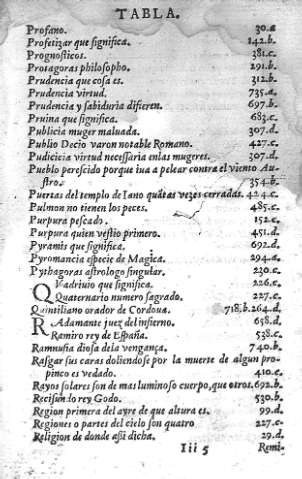 TABLA.
Profano. 30.a
Profetizar que significa. 142.b.
Prognosticos. 381.c.
Protagoras philosopho. 291.b.
Prudencia que cosa es. 312.b.
Prudencia virtud. 735.a.
Prudencia y sabiduria difieren. 697.b.
Pruina que significa. 683.c.
Publicia muger maluada. 307.d.
Publio Decio varon notable Romano. 427.c.
Pudicicia virtud necessaria enlas mugeres. 307.d.
Pueblo perescido porque iua a pelear contra el viento Au
stro. 354.b.
Puertas del templo de Iano quãtas vezes cerradas. 424.c.
Pulmon no tienen los peces. 485.c.
Purpura pescado. 152.c.
Purpura quien vestio primero. 451.d.
Pyramis que significa. 692.d.
Pyromancia especie de Magica. 294.a.
Pythagoras astrologo singular. 230.c.
QVadriuio que significa. 226.c.
Quaternario numero sagrado. 227.c.
Quintiliano orador de Cordoua. 718.b.264.d.
RAdamante juez del infierno. 658.d.
Ramiro rey de España. 538.c.
Ramnusia diosa dela vengança. 740.b.
Rasgar sus caras doliendose por la muerte de algun pro-
pinco es vedado. 410.c.
Rayos solares son de mas luminoso cuerpo, que otros. 692.b.
Recisundo rey Godo. 530.b.
Region primera del ayre de que altura es. 99.d.
Regiones o partes del cielo son quatro 227.c.
Religion de donde assi dicha. 29.d.
Iii 5 Remi-